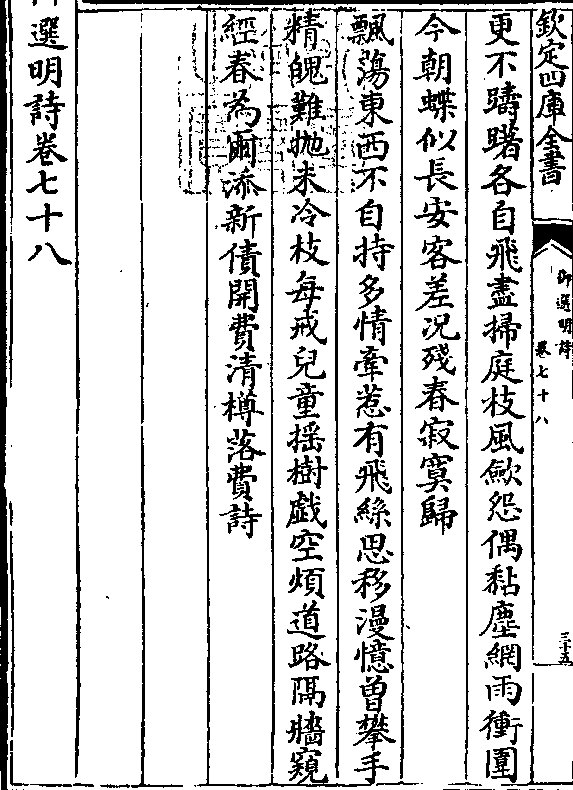 欽定四庫全書
御選明詩
卷七十八
三十五
更不躊躇各自飛盡掃庭枝風歛怨偶黏塵網雨衝圍
今朝蝶似長安客差况殘春寂寞歸
飄蕩東西不自持多情牽惹有飛絲思移漫憶曽攀手
精魄難抛未冷枝每戒兒童揺樹戯空煩道路隔牆窺
經春為爾添新債開費清樽落費詩
選明詩卷七十八